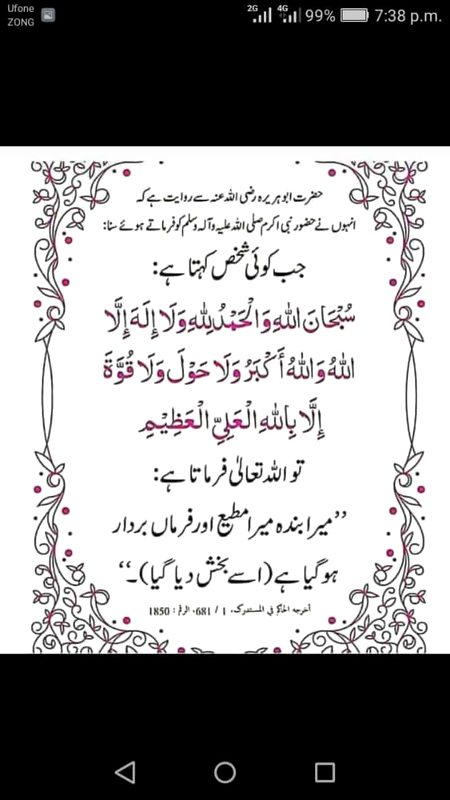 Ufone
ZONG
2G 4G 99% 7:38 p.m.
حضرت ابو ہریرہ رضی اللہ عنہ سے روایت ہے کہ
انہوں نے حضور نبی اکرم صلی اللہ علیہ وآلہ وسلم کو فرماتے ہوئے سنا:
جب کوئی شخص کہتا ہے:
سُبْحَانَ اللهِ وَالْحَمْدُ لِلّٰهِ وَلَا إِلٰهَ إِلَّا
اللهُ وَاللهُ أَكْبَرُ وَلَا حَوْلَ وَلَا قُوَّةَ
إِلَّا بِاللهِ الْعَلِيِّ الْعَظِيْمِ
تو اللہ تعالیٰ فرماتا ہے:
’’میرا بندہ میرا مطیع اور فرماں بردار
ہو گیا ہے (اسے بخش دیا گیا)۔‘‘
أخرجه الحاكم في المستدرك، 1 / 681، الرقم: 1850